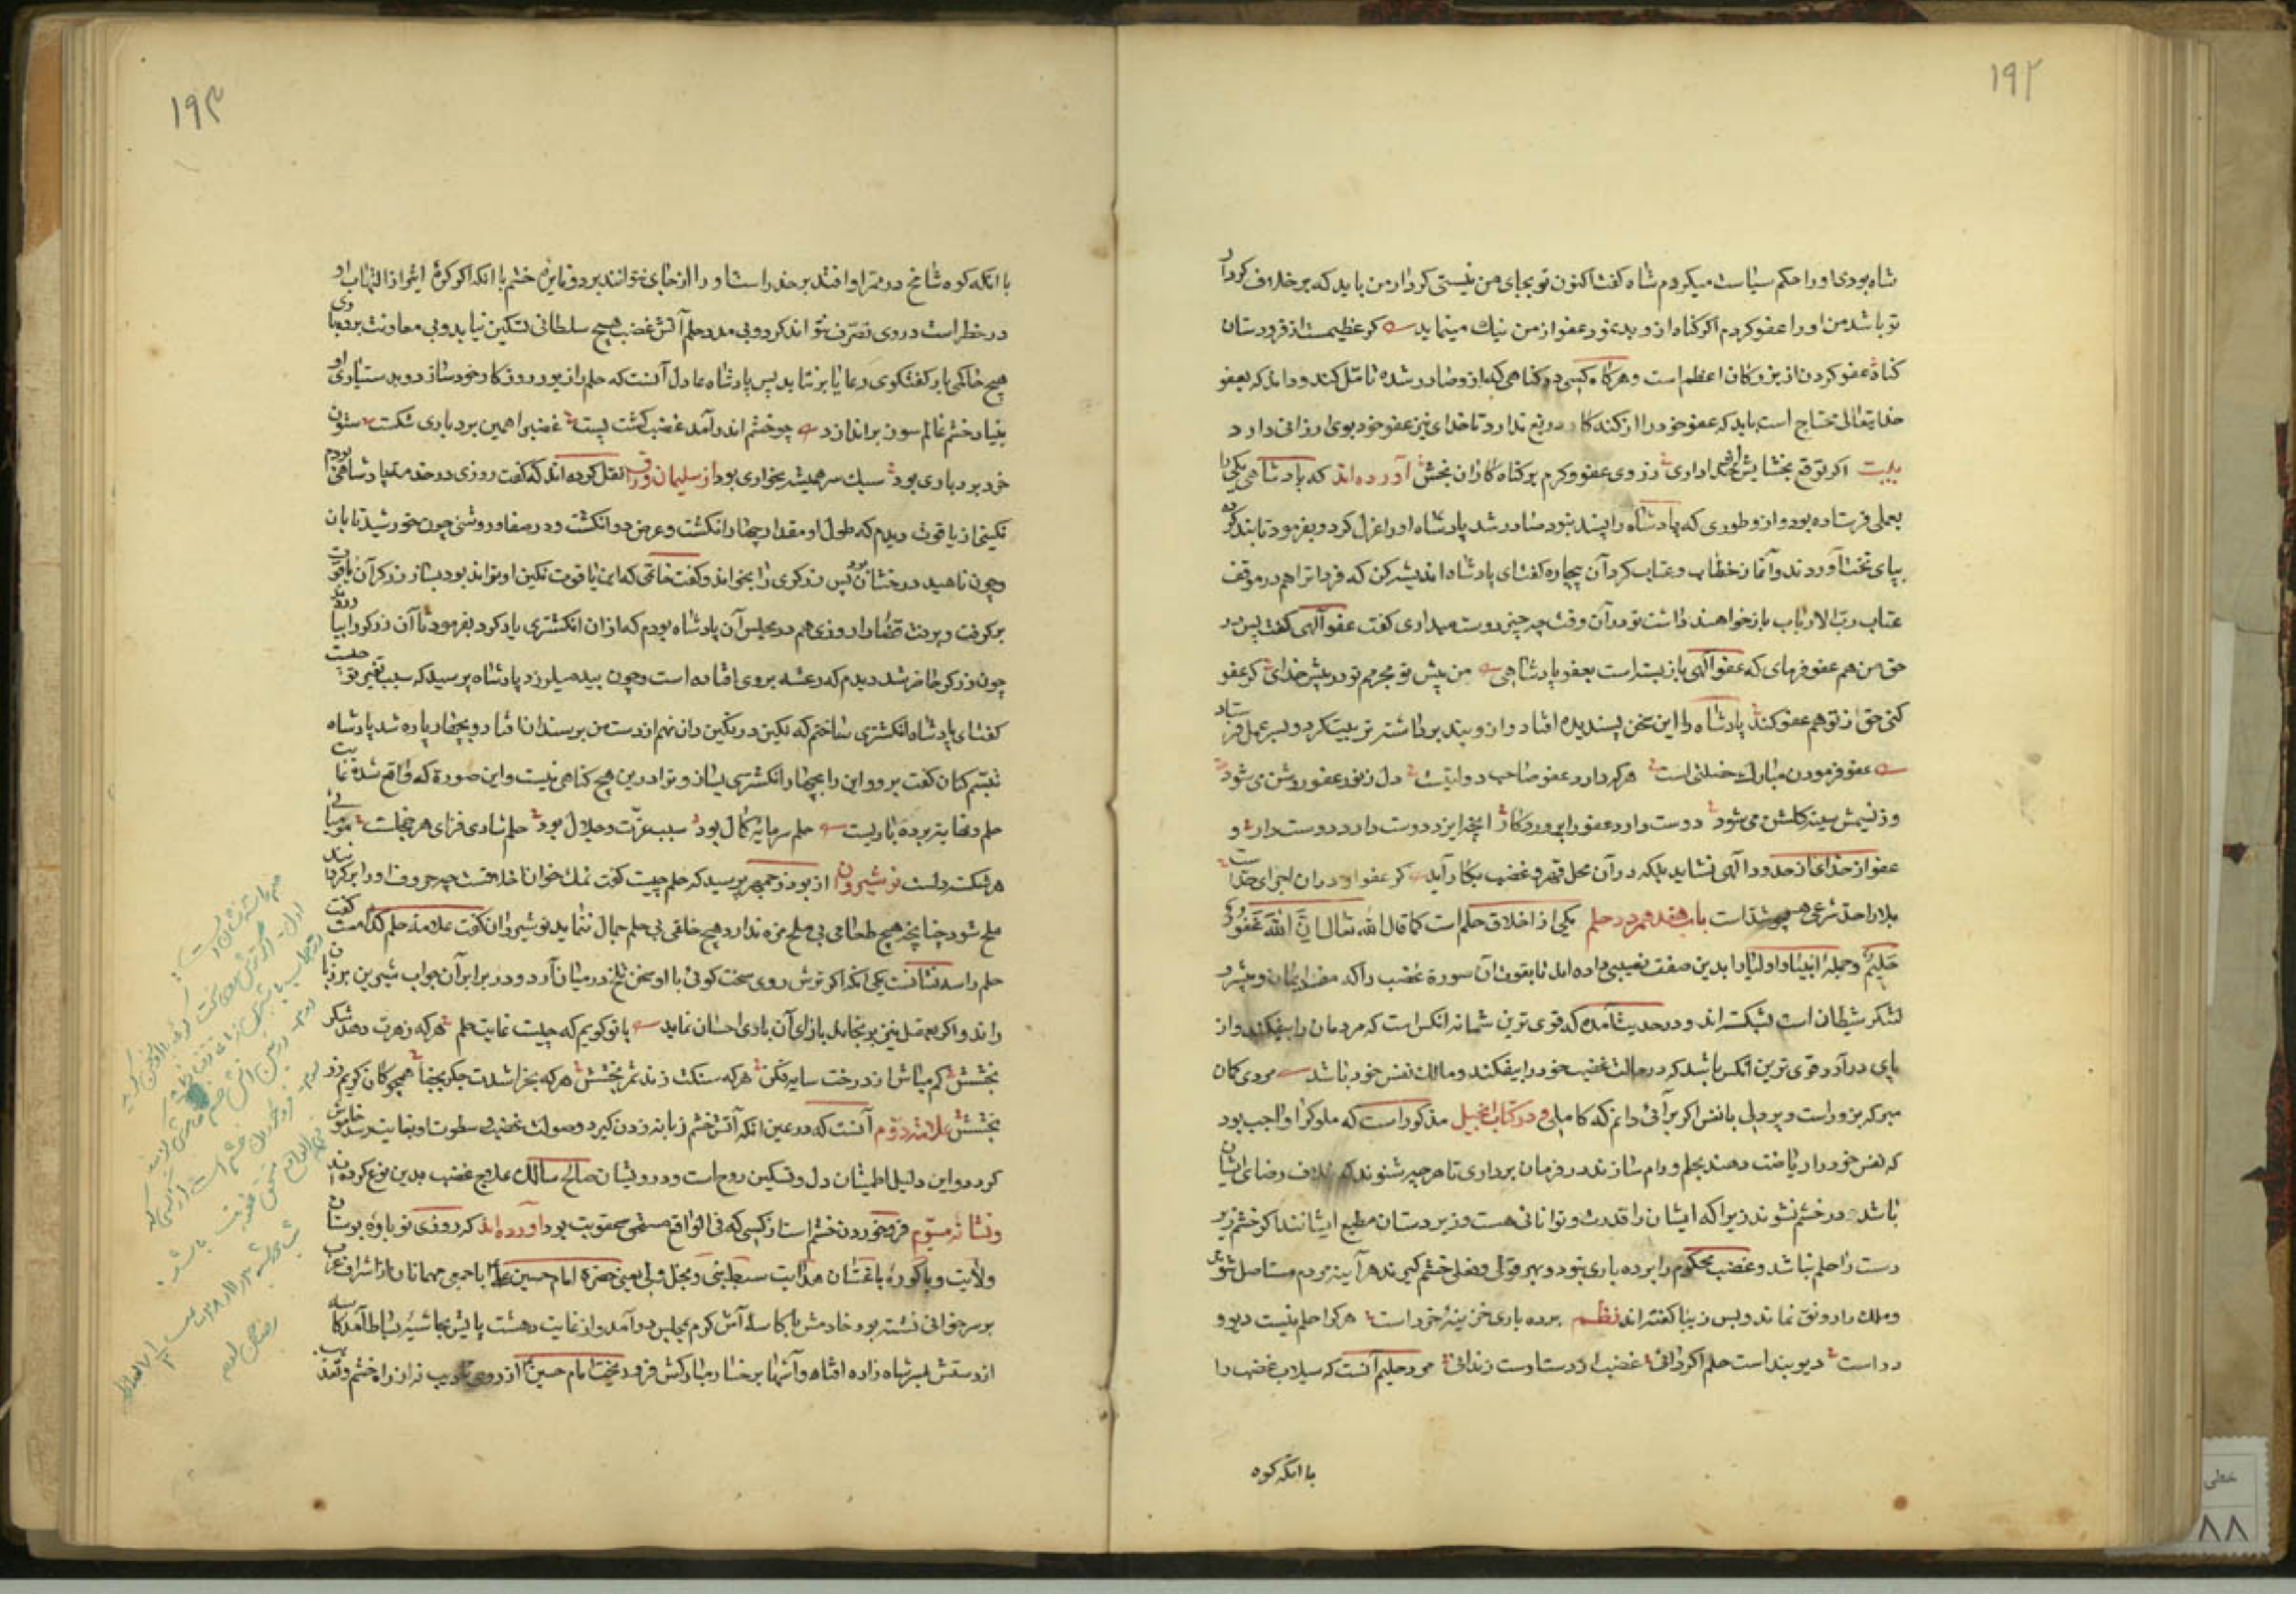 ۱۹۲
شاه بودی او را حکم سیاست میکردم شاه گفت اکنون تو بجای من نیستی کردار من باید که برخلاف کردار
تو باشد من او را عفو کردم اگر گناه از وی بد نمود عفو از من نیک مینماید که عظیمست از فرودستان
گناه عفو کردن از بزرگان اعظم است و هرگاه کسی در گناهی که از و صادر شده تامل کند و داند که بعفو
خدایتعالی محتاج است باید که عفو خود را از گنه کار دریغ ندارد تا خدای نیز عفو خود بوی ارزانی دارد
بیت اگر توقع بخشایش خدا داری ز روی عفو و کرم بر گناه کاران بخش آورده اند که پادشاهی یکی را
بعملی فرستاده بود و از و طوری که پادشاه را پسند نبود صادر شد پادشاه او را عزل کرد و بفرمود تا بند کرده
بپای تخت آوردند و آغاز خطاب و عتاب کرد آن بیچاره گفت ای پادشاه اندیشه کن که فردا ترا هم در موقف
عتاب رب الارباب باز خواهند داشت تو در آن وقت چه چیز دوست میداری گفت عفو الهی گفت پس در
حق من هم عفو فرمای که عفو الهی باز بسته است بعفو پادشاهی من پیش تو مجرمم تو در پیش خدای گر عفو
کنی حق از تو هم عفو کند پادشاه را این سخن پسندیده افتاد و از و بند برداشته تربیت کرد و بسر عمل فرستاد
عفو فرمودن مبارک خصلتی است هر که دارد عفو صاحب دولتیست دل ز نور عفو روشن می شود
وز نسیمش سینه گلشن می شود دوست دارد عفو را پروردگار آنچه ایزد دوست دارد دوست دار و
عفو از حدای از حدود الهی نشاید بلکه در آن محل قهر و غضب بکار آید گر عفو در ان اجرای حد است
باب هفدهم در حلم یکی از اخلاق حلم است کما قال الله تعالی ان الله غفور
حلیم و جمله انبیا و اولیا را بدین صفت نصیبی داده اند تا بقوت آن سورة غضب را که مفسد ایمان و میشرو
لشکر شیطان است بشکسته اند و در حدیث آمده که قوی ترین شما نه انکس است که مردمان را بیفکند و از
پای درآرد قوی ترین انکس باشد که در حالت غضب خود را بیفکند و مالک نفس خود باشد مردی گمان
مبر که بزور است و پردلی با نفس اگر برآئی دانم که کاملی و در کتاب انجیل مذکور است که ملوک را واجب بود
که نفس خود را ریاضت دهند بحلم و رام سازند در فرمان برداری تا هر چیز شنوند که خلاف رضای ایشان
باشد در خشم نشوند زیرا که ایشان را قدرت و توانائی هست و زیردستان مطیع ایشانند اگر خشم زبر
دست را حلم نباشد و غضب محکوم را برده باری نبود و بهر قولی و فعلی خشم گیرند هر آینه مردم مستاصل شوند
و ملک را رونق نماند و بس زیبا گفته اند نظم برده باری خزینه خرد است هر که را حلم نیست دیو و
دد است دیو بند است حلم اگر دانی غضب ار دستاوست زندانی مرد حلیم آنست که سیلاب غضب را
با انکه کوه
۱۹۳
با انکه کوه شامخ در ممر او افتد بر حذر است او را از جای نتواند برد و نایره خشم با انکه اگر کره اثیر از التهاب او
در خطر است در وی تصرف نتواند کرد و بی مدد حلم آتش غضب هیچ سلطانی تسکین نیابد و بی معاونت بردباری
هیچ حاکمی بار گفتگوی رعایا بر نتابد پس پادشاه عادل آنست که حلم را زیور روزگار خود سازد و بدستیاری او
بنیاد خشم عالم سوز براندازد چو خشم اندر آمد غضب گشت پست غضب را همین بردباری شکست ستون
خرد بردباری بود سبک سر همیشه بخواری بود از سلیمان وراق نقل کرده اند که گفت روزی در خدمت پادشاهی بودم
نگینی از یاقوت دیدم که طول او مقدار چهار انگشت و عرض دو انگشت و در صفا و روشنی چون خورشید تابان
و چون ناهید درخشان بود پس زرگری را بخواند و گفت خاتمی که این یاقوت نگین او تواند بود بساز زرگر آن یاقوت
برگرفت و برفت قضا را روزی هم در مجلس آن پادشاه بودم که از ان انگشتری یاد کرد بفرمود تا آن زرگر را بیاورند
چون زرگر حاضر شد دیدم که رعشه بر وی افتاده است و چون بید میلرزد پادشاه پرسید که سبب تغیر تو چیست
گفت ای پادشاه انگشتری ساختم که نگین در نگین دان نهم از دست من بر سندان افتاد و بچهار پاره شد پادشاه
تبسم کنان گفت برو و این را بچهار انگشتری بساز و ترا درین هیچ گناهی نیست و این صورة که واقع شد غایت
حلم و نهایت برده باریست حلم سرمایه کمال بود سبب عزت و جلال بود حلم شادی فزای هر خجلست مومیائی
هر شکسته دلست نوشیروان از بوذرجمهر پرسید که حلم چیست گفت نمک خوان اخلاقست چه حروف او را برگردانند
ملح شود چنانچه هیچ طعامی بی ملح مزه ندارد هیچ خلقی بی حلم جمال ننماید نوشیروان گفت علامة حلم کدامست گفت
حلم را سه نشانست یکی انکه اگر ترش روی سخت گوئی با او سخن تلخ در میان آرد و در برابر آن جواب شیرین بر زبان
راند و اگر بفعل نیز برنجاند بازای آن با وی احسان نماید با تو گویم که چیست غایت حلم هر که زهرت دهد شکر
بخشش کم مباش از درخت سایه فکن هر که سنگت زند ثمر بخشش هر که بخراشدت جگر بجفا همچو کان کریم زر
بخشش علامت دوم آنست که در عین انکه آتش خشم زبانه زدن گیرد و صولت غضب و سطوت او بغایت رسد خاموش
گردد و این دلیل اطمینان دل و تسکین روح است و درویشان صالح سالک علاج غضب بدین نوع کرده اند
و نشانه سیوم فروخوردن خشم است از کسی که فی الواقع مستحق عقوبت بود آورده اند که روزی نوباوه بوستان
ولایت و باکوره باغستان هدایت سبط نبی و نجل ولی یعنی حضرة امام حسین با جمعی مهمانان از اشراف عرب
بر سر خوانی نشسته بود خادمش با کاسه آش گرم بمجلس درآمد و از غایت دهشت پایش بحاشیه بساط آمد کاسه
از دستش بسر شاه زاده افتاد و آشها بر رخسار مبارکش فرو ریخت امام حسین از روی تادیب نه از راه خشم و تعذیب
خطی
۸۸